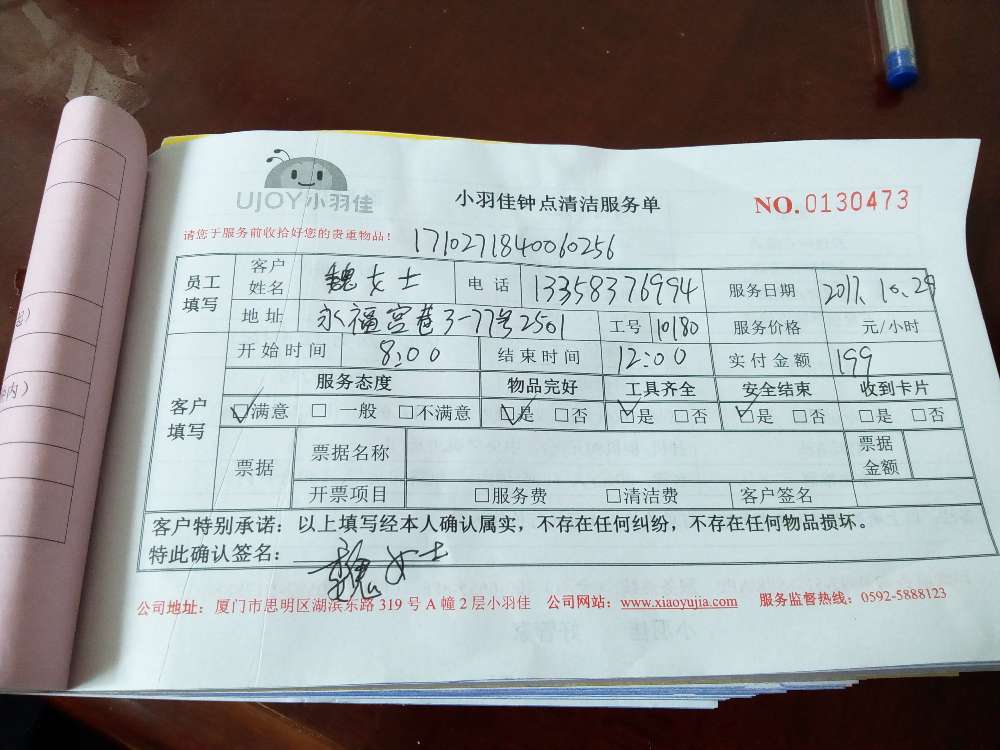 UJOY小羽佳
小羽佳钟点清洁服务单
NO.0130473
请您于服务前收拾好您的贵重物品！ 1710271840060256
员工填写 客户姓名 魏女士 电话 13358376994 服务日期 2017.10.29
地址 永福宫巷3-77号2501 工号 10180 服务价格 元/小时
客户填写 开始时间 8:00 结束时间 12:00 实付金额 199
服务态度 物品完好 工具齐全 安全结束 收到卡片
☑满意 □一般 □不满意 ☑是 □否 ☑是 □否 ☑是 □否 □是 □否
票据 票据名称 票据金额
开票项目 □服务费 □清洁费 客户签名
客户特别承诺：以上填写经本人确认属实，不存在任何纠纷，不存在任何物品损坏。
特此确认签名：魏女士
公司地址：厦门市思明区湖滨东路319号A幢2层小羽佳 公司网站：www.xiaoyujia.com 服务监督热线：0592-5888123